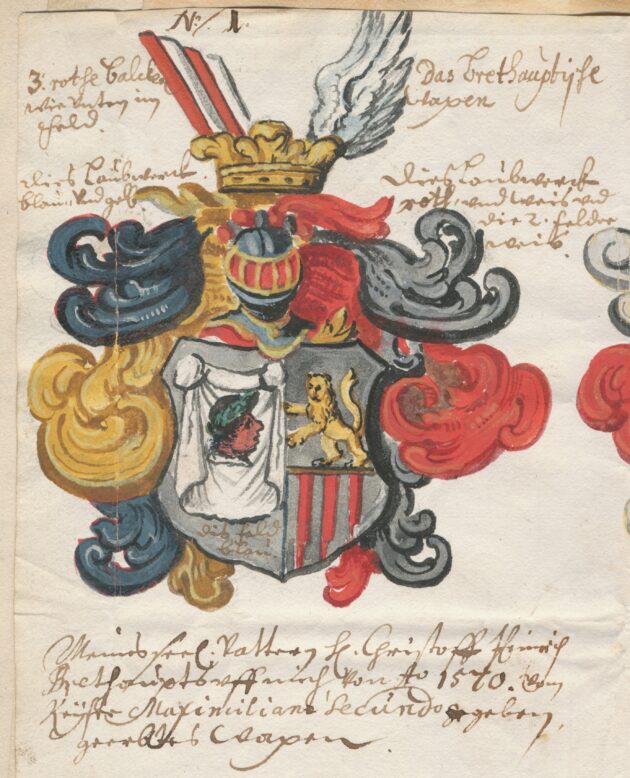 No: 1.
3. rothe balcken
wie unten im
feld.
Das Brethauptische
Wapen
dies Laubwerck
blau und gelb
dies Laubwerck
roth und weis und
die 2. felder
weis.
dis feld
blau
Meines seel: Vattern H. Christoff Heinrich
Brethaupts uff mich von Ao 1570. vom
Keyser Maximiliano Secundo gegeben
geerbtes Wapen